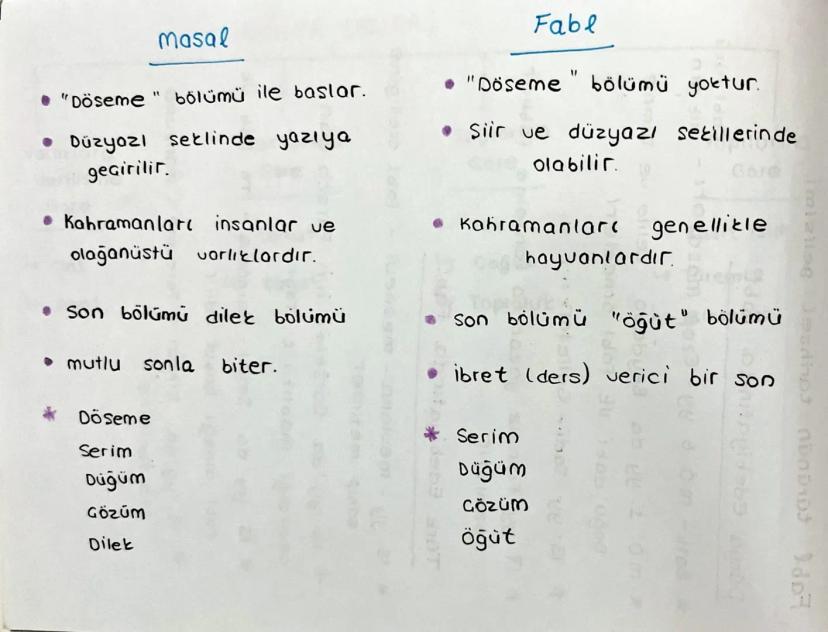 masal
• "Döseme" bölümü ile baslar.
• Düzyazı seklinde yazıya
gecirilir.
• Kahramanları insanlar ve
olağanüstü varlıklardır.
• Son bölümü dilek bölümü
• mutlu sonla biter.
* Döseme
Serim
Düğüm
Cözüm
Dilek
Fabl
• "Döseme" bölümü yoktur.
• Siir ve düzyazı sekillerinde
olabilir.
• Kahramanları genellikle
hayvanlardır.
• son bölümü "öğüt" bölümü
• ibret (ders) verici bir son
* Serim
Düğüm
Cözüm
Öğüt